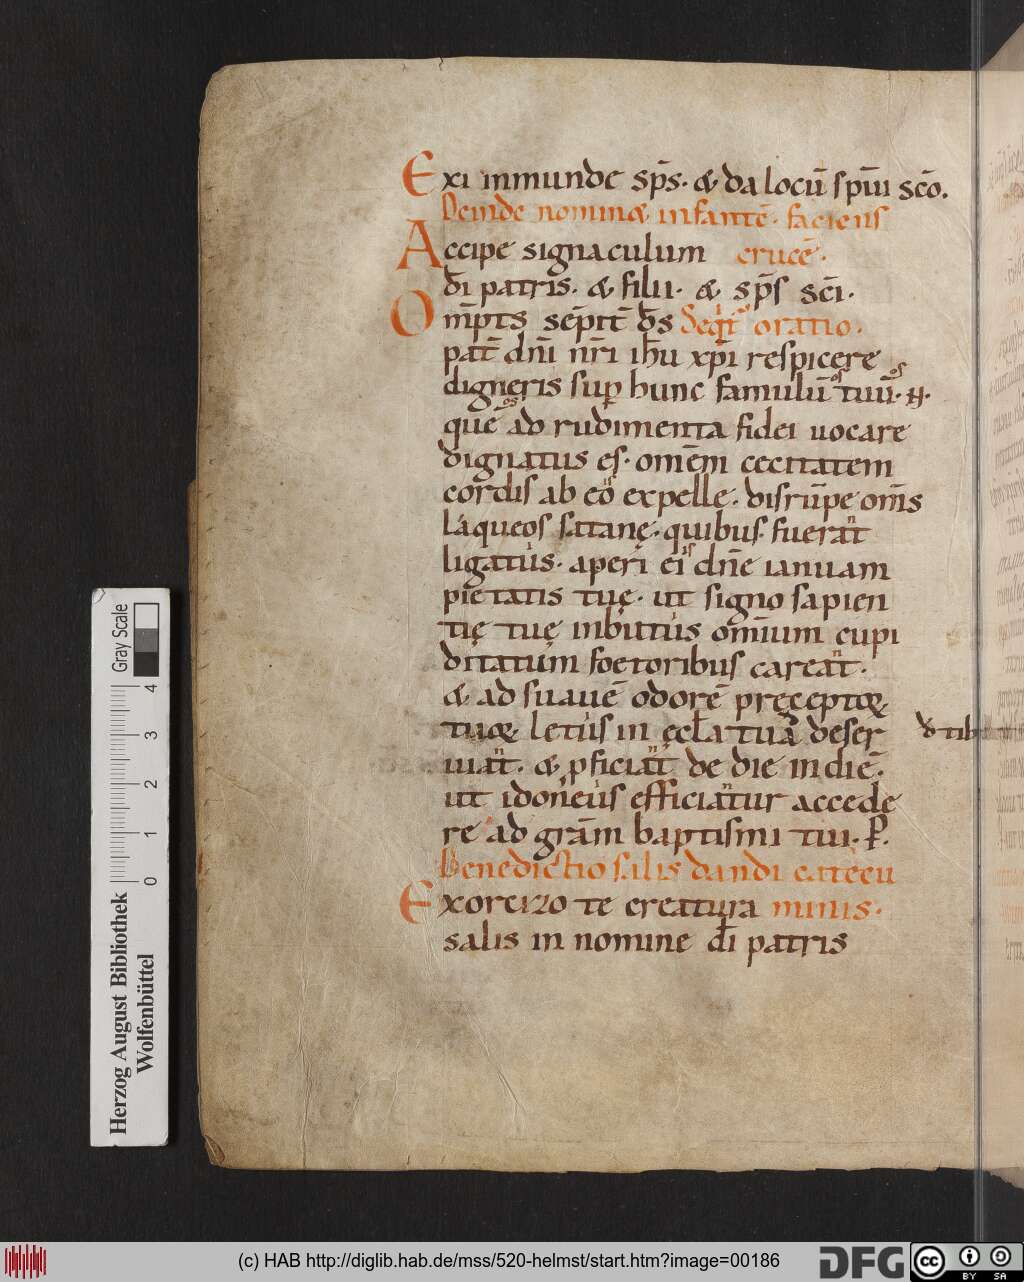 Exi inmunde sp̄s. & da locū spīui scō.
Deinde nomina infantē. faciens
Accipe signaculum crucē.
dī patris. & filii. & sp̄s sc̄i.
Om̄pts sēpit d̄s Seqt̄ oratio.
pat̄ dn̄i nr̄i ih̄u xp̄i respicere
digneris sup hunc famulū tuū. N.
os os
quē ad rudimenta fidei uocare
os
dignatus es. omēm cecitatem
cordis ab eo expelle. disrūpe om̄s
laqueos satanę. quibus fuerat
ligatus. aperi ei dn̄e ianuam
is
pietatis tuę. ut signo sapien
tię tuę inbutus om̄ium cupi
ditatum foetoribus careat.
& ad suauē odorē pręceptoꝝ
tuoꝝ letus in ęcla tuā deser
d tib
uiat. & ꝓficiat de die in diē.
ut idoneus efficiatur accede
re ad grām baptismi tui. P.
Benedictio salis dandi catecu
Exorcizo te creatura minis.
salis in nomine dī patris
Gray Scale
4 3 2 1 0
Herzog August Bibliothek
Wolfenbüttel
(c) HAB http://diglib.hab.de/mss/520-helmst/start.htm?image=00186
DFG
cc BY SA